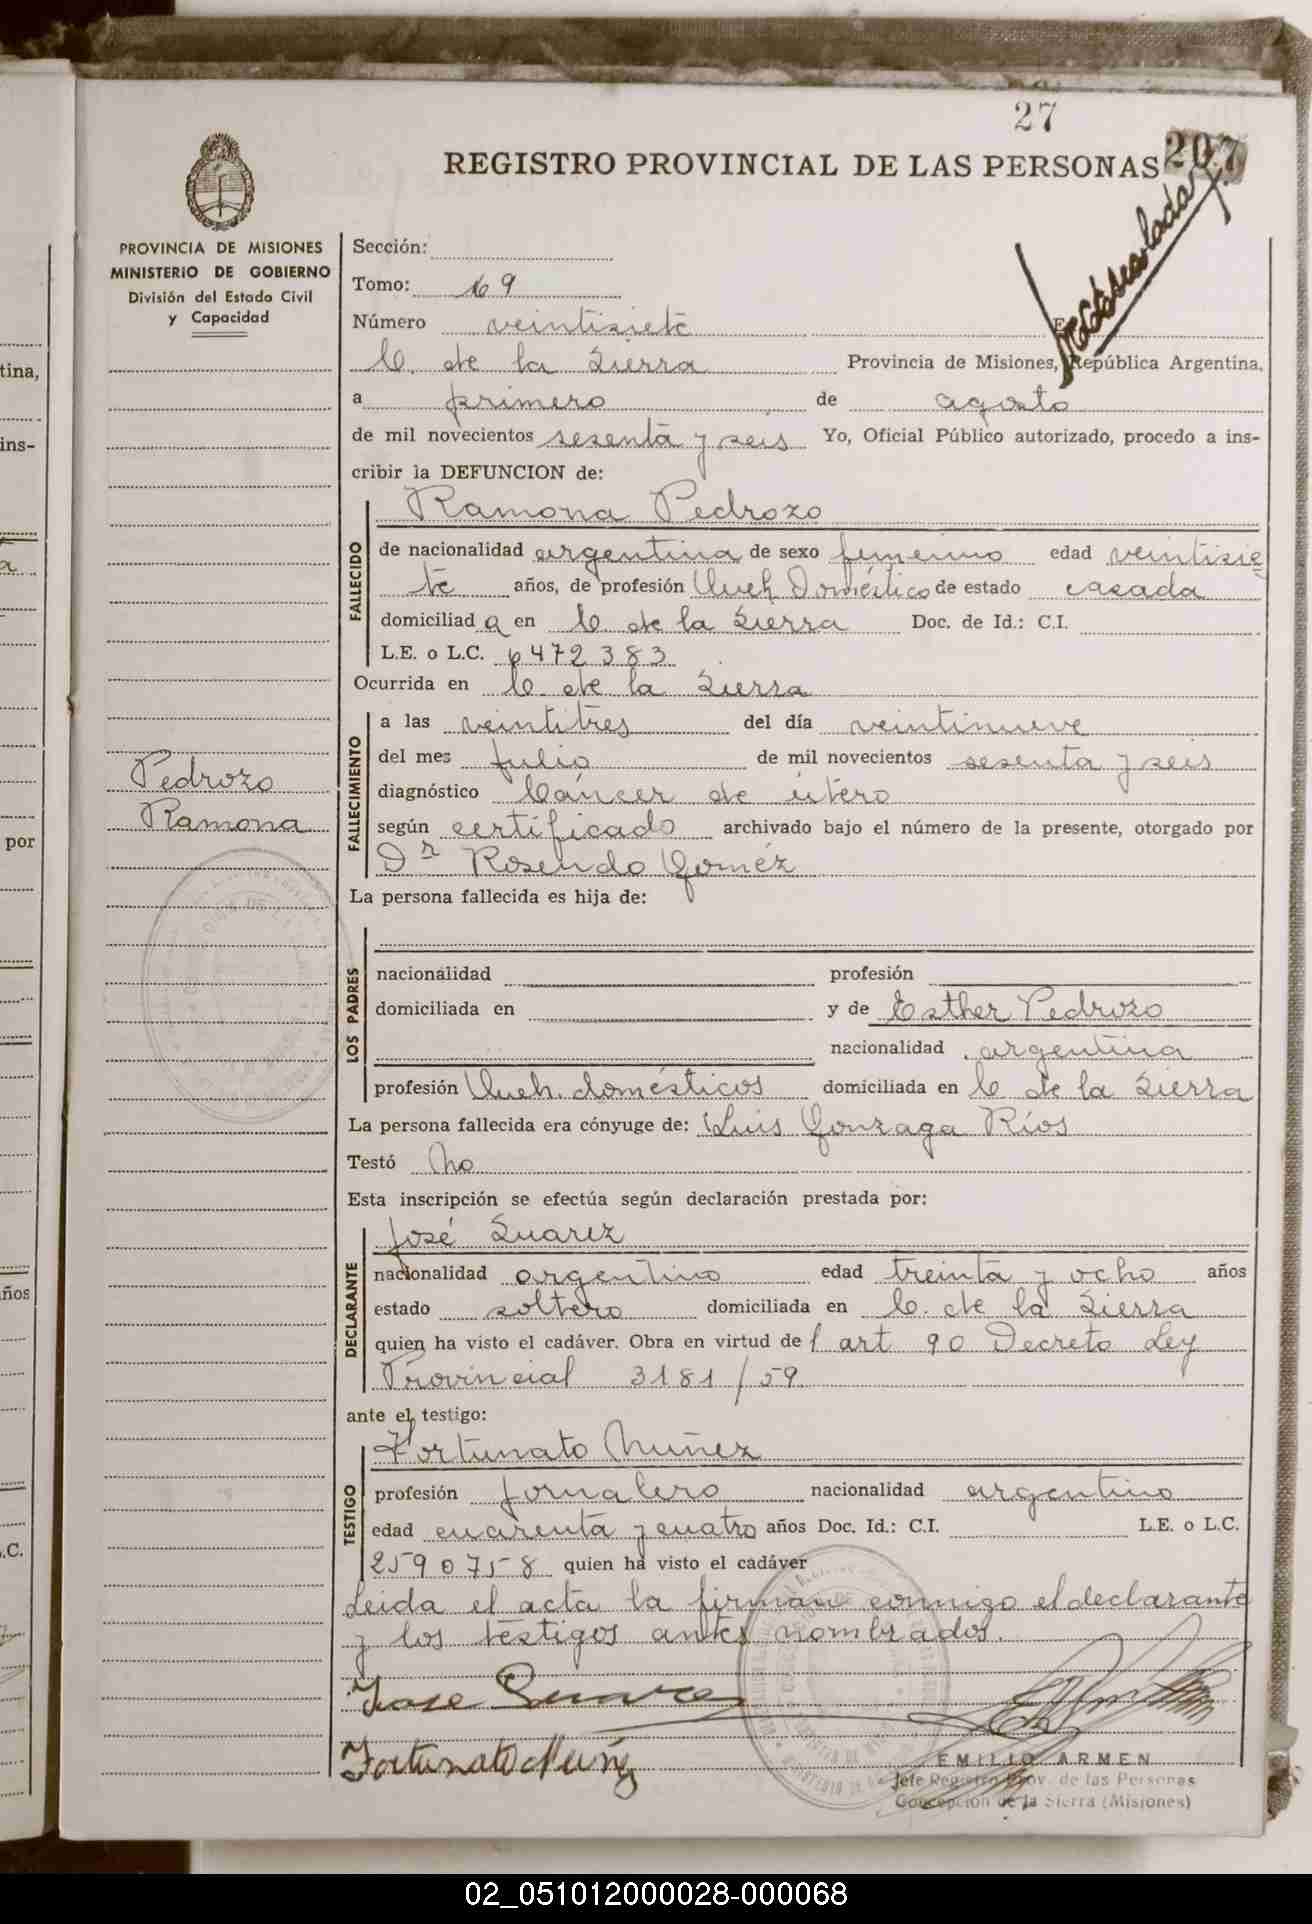 27
207
REGISTRO PROVINCIAL DE LAS PERSONAS
PROVINCIA DE MISIONES
MINISTERIO DE GOBIERNO
División del Estado Civil
y Capacidad
Sección:
Tomo: 69
Número veintisiete
C. de la Sierra Provincia de Misiones, República Argentina,
a primero de agosto
de mil novecientos sesenta y seis Yo, Oficial Público autorizado, procedo a ins-
cribir la DEFUNCION de:
Ramona Pedrozo
FALLECIDO
de nacionalidad argentina de sexo femenino edad veintisie
te años, de profesión Queh Doméstico de estado casada
domiciliad a en C de la Sierra Doc. de Id.: C.I.
L.E. o L.C. 6472383
Ocurrida en C. de la Sierra
FALLECIMIENTO
a las veintitres del día veintinueve
del mes julio de mil novecientos sesenta y seis
diagnóstico Cáncer de útero
según certificado archivado bajo el número de la presente, otorgado por
Dr Rosendo Goméz
Pedrozo
Ramona
La persona fallecida es hija de:
LOS PADRES
nacionalidad profesión
domiciliada en y de Esther Pedrozo
nacionalidad argentina
profesión Queh. domésticos domiciliada en C de la Sierra
La persona fallecida era cónyuge de: Luis Gonzaga Ríos
Testó No
Esta inscripción se efectúa según declaración prestada por:
José Suarez
DECLARANTE
nacionalidad argentino edad treinta y ocho años
estado soltero domiciliada en C. de la Sierra
quien ha visto el cadáver. Obra en virtud de l art 90 Decreto Ley
Provincial 3181/59
ante el testigo:
Fortunato Nuñez
TESTIGO
profesión Jornalero nacionalidad argentino
edad cuarenta y cuatro años Doc. Id.: C.I. L.E. o L.C.
2590758 quien ha visto el cadáver
Leida el acta la firman conmigo el declarante
y los testigos antes nombrados.
Jose Suarez
Fortunato Nuñez
EMILIO ARMEN
Jefe Registro Prov. de las Personas
Concepción de la Sierra (Misiones)
tina,
ins-
a
por
ños
.C.
02_051012000028-000068